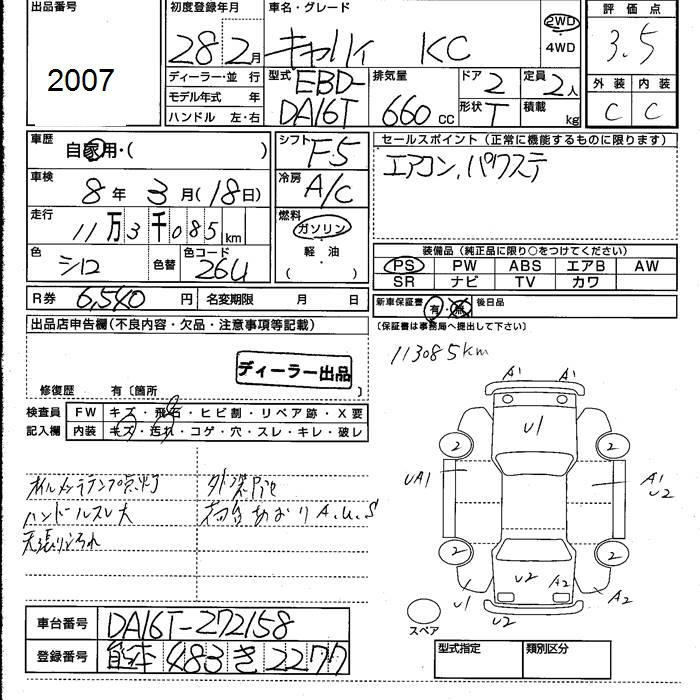 出品番号 初度登録年月 車名・グレード 評価点
2007 28年2月 キャリィ KC 2WD ・4WD 3.5
ディーラー・並行 型式 排気量 ドア 定員 外装 内装
モデル年式 年 EBD- 2 2人 C C
ハンドル 左・右 DA16T 660cc 形状 T 積載 kg
車歴 シフト セールスポイント(正常に機能するものに限ります)
自家用・( ) F5 エアコン、パワステ
車検 冷房
8年 3月(18日) A/C
走行 燃料
11万3千085km ガソリン
色 色替 色コード 軽油 装備品(純正品に限り○をつけてください)
シロ 26U ( ) PS PW ABS エアB AW
SR ナビ TV カワ
R券 6,540円 名変期限 月 日 新車保証書 有・無 後日品
出品店申告欄(不良内容・欠品・注意事項等記載) (保証書は事務局へ提出して下さい)
113085km
ディーラー出品
修復歴 有〔箇所
検査員 FW キズ・飛石・ヒビ割・リペア跡・X要
記入欄 内装 キズ・汚れ・コゲ・穴・スレ・キレ・破レ
オイルメンテランプ点灯 外装
ハンドルスレ大 荷台あおりA.U.S
天張りよごれ
A1 A1
U1
2 2
UA1 A1 U2
2 2
U1 U2 A2 A2
スペア U2
車台番号 DA16T-272158
登録番号 熊本 483 き 2277
型式指定 類別区分